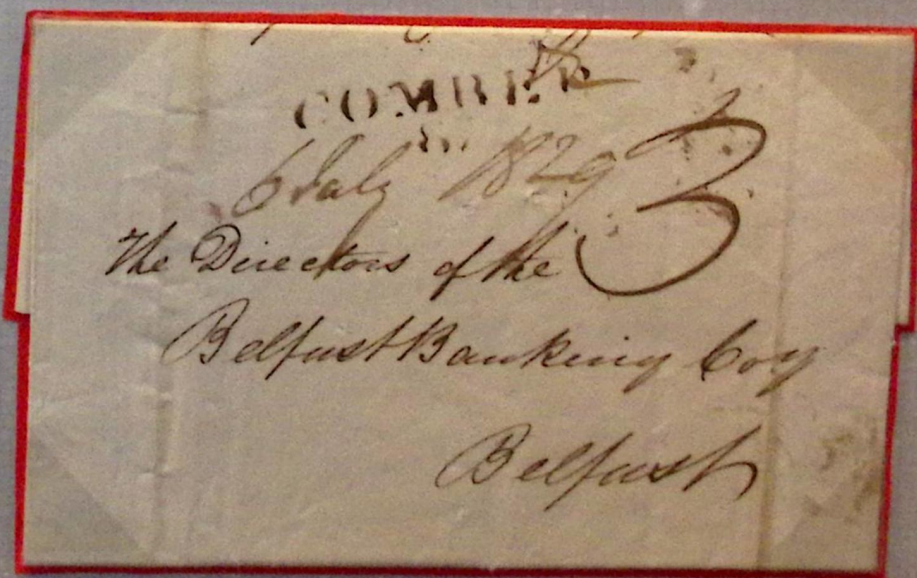 COMBER
6 July 1829
3
The Directors of the
Belfast Banking Coy
Belfast